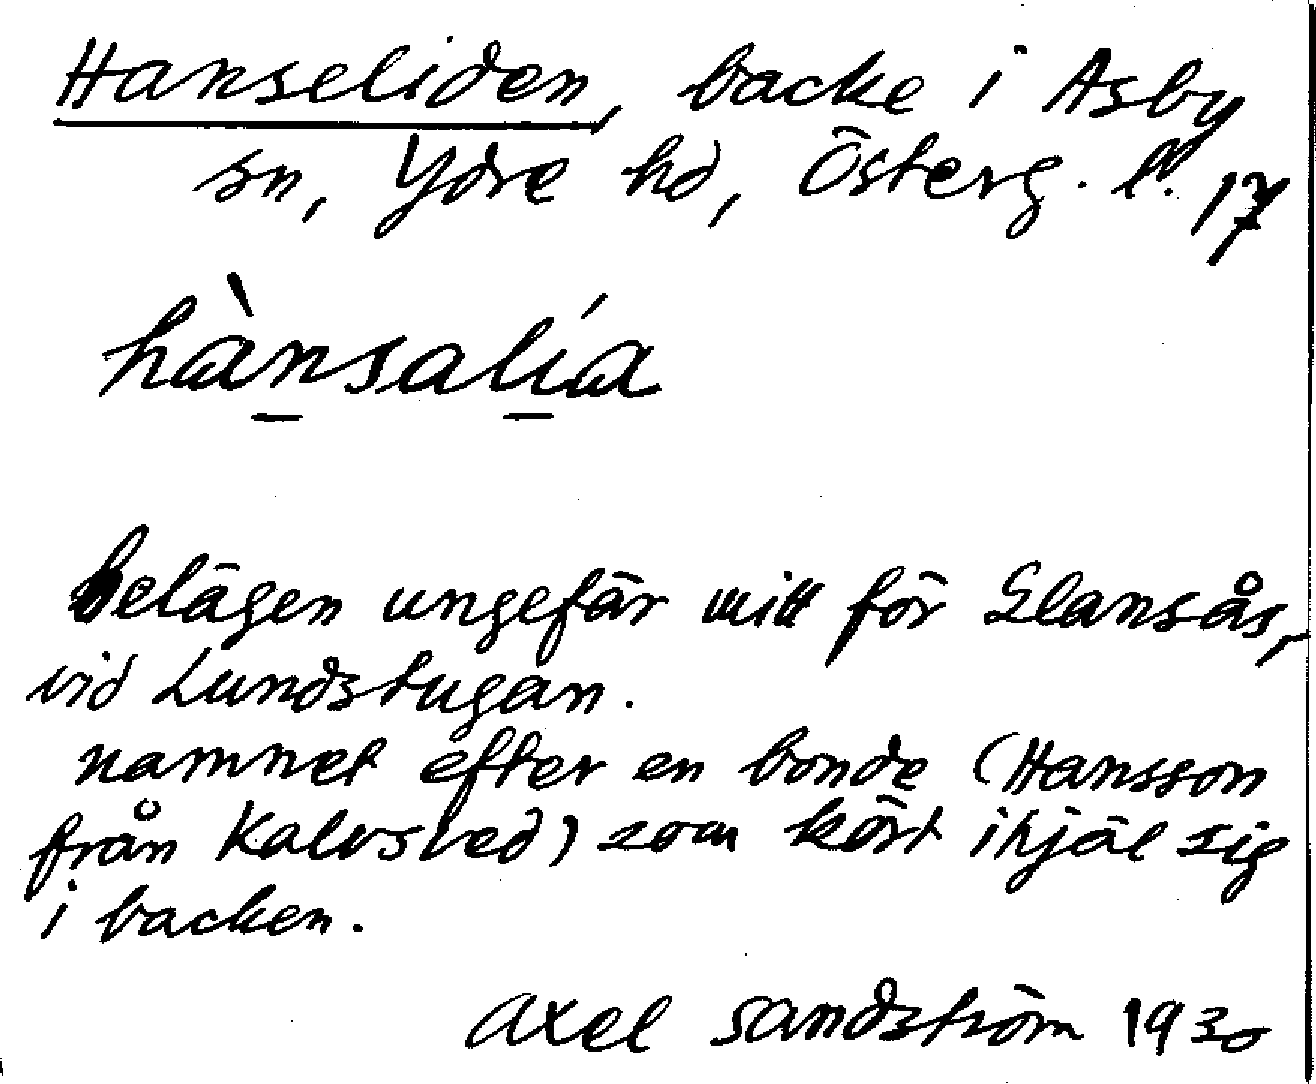 Hanseliden, backe i Asby
sn, Ydre hd, Österg. l. 17
hànsalía
belägen ungefär mitt för Glansås,
vid Lundstugan.
namnet efter en bonde (Hansson
från Kalvsved) som kört ihjäl sig
i backen.
Axel Sandström 1930